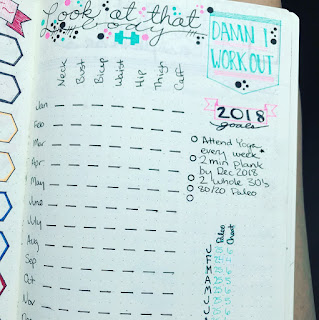 Look at that
body
DAMN I
WORKOUT
Neck Bust Bicep Waist Hip Thigh Calf
Jan
Feb
Mar
Apr
May
June
July
Aug
Sep
Oct
Nov
2018
goals
Attend Yoga
every week
2 min plank
by Dec 2018
2 Whole 30's
80/20 Paleo
Paleo
Cheat
J
F
M
A
M
J
J